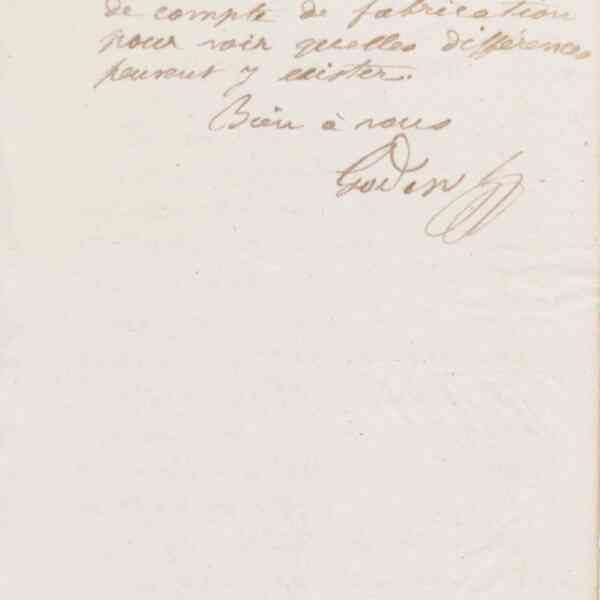 de compte de fabrication
pour voir quelles différences
peuvent y exister.
Bien à vous
Godin